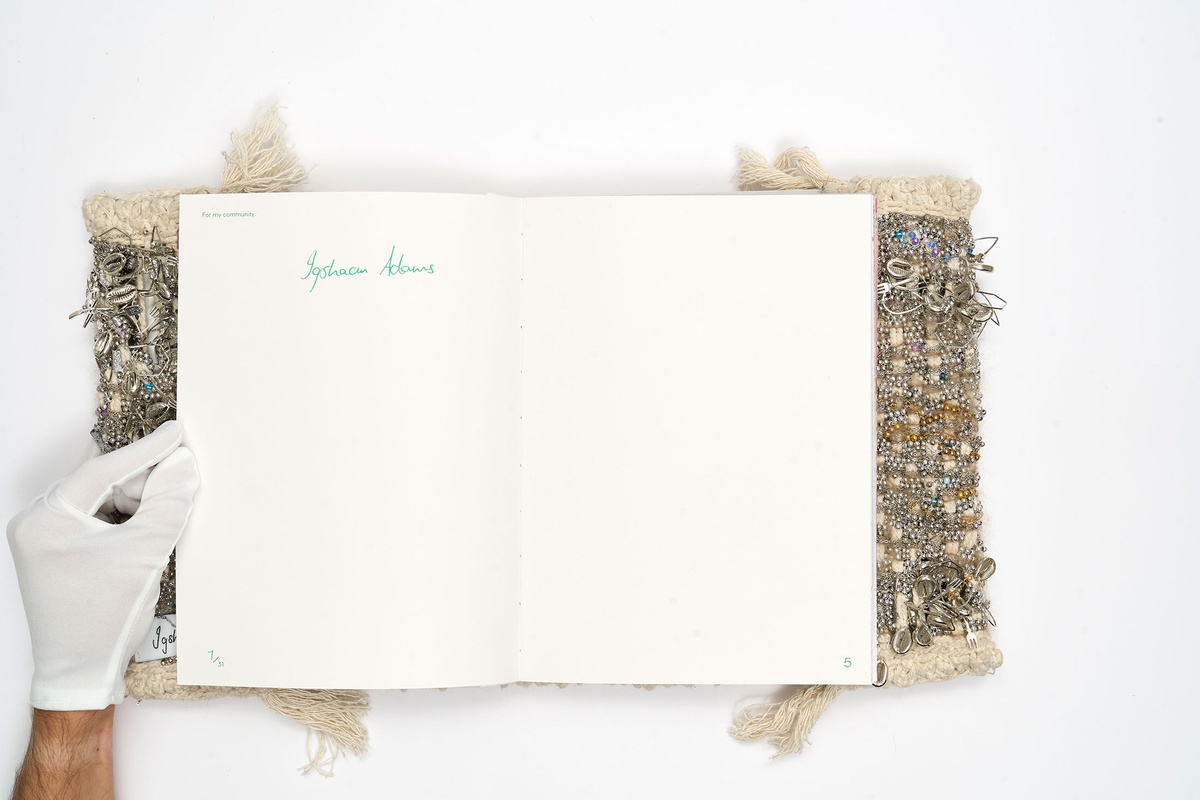 For my community.
Igshaan Adams
1/31
5
Igsh